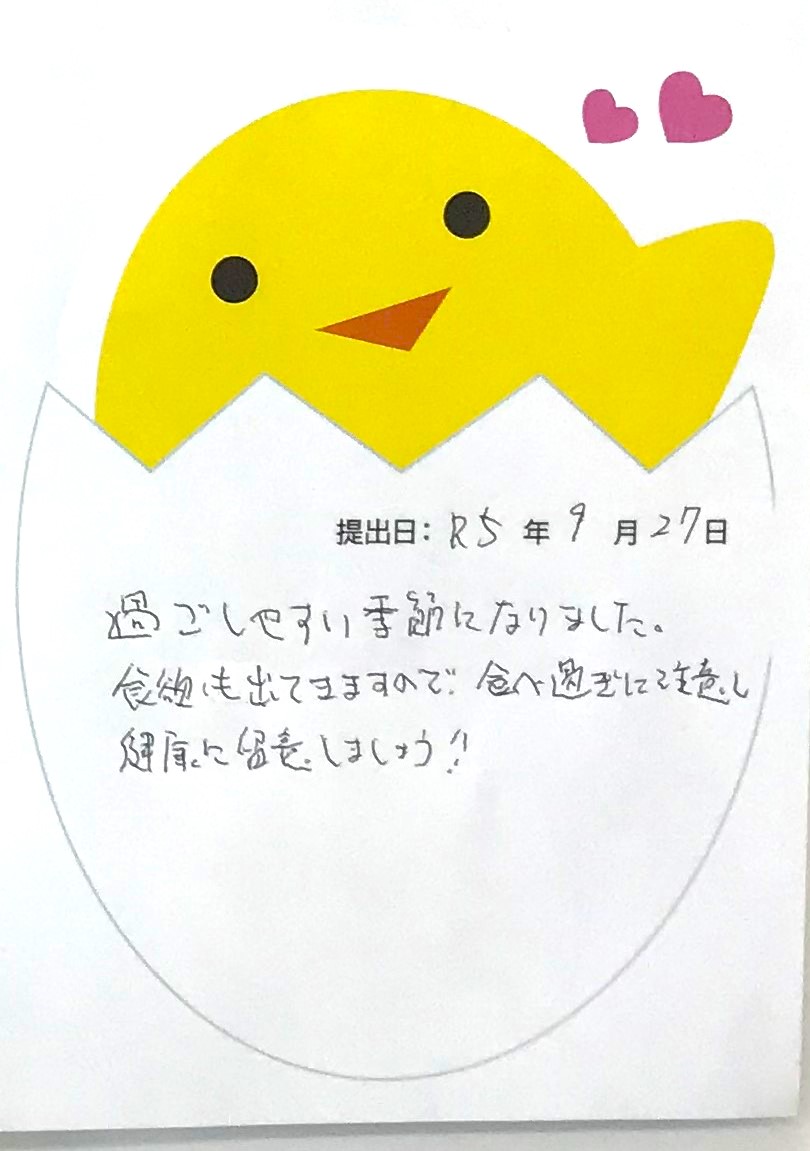 提出日：R5年9月27日
過ごしやすい季節になりました。
食欲も出てきますので、食べ過ぎに注意し
健康に留意しましょう!!